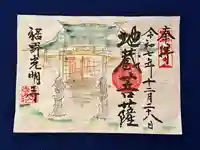 奉拝
令和七年十二月二十八日
地蔵菩薩
福野光明寺